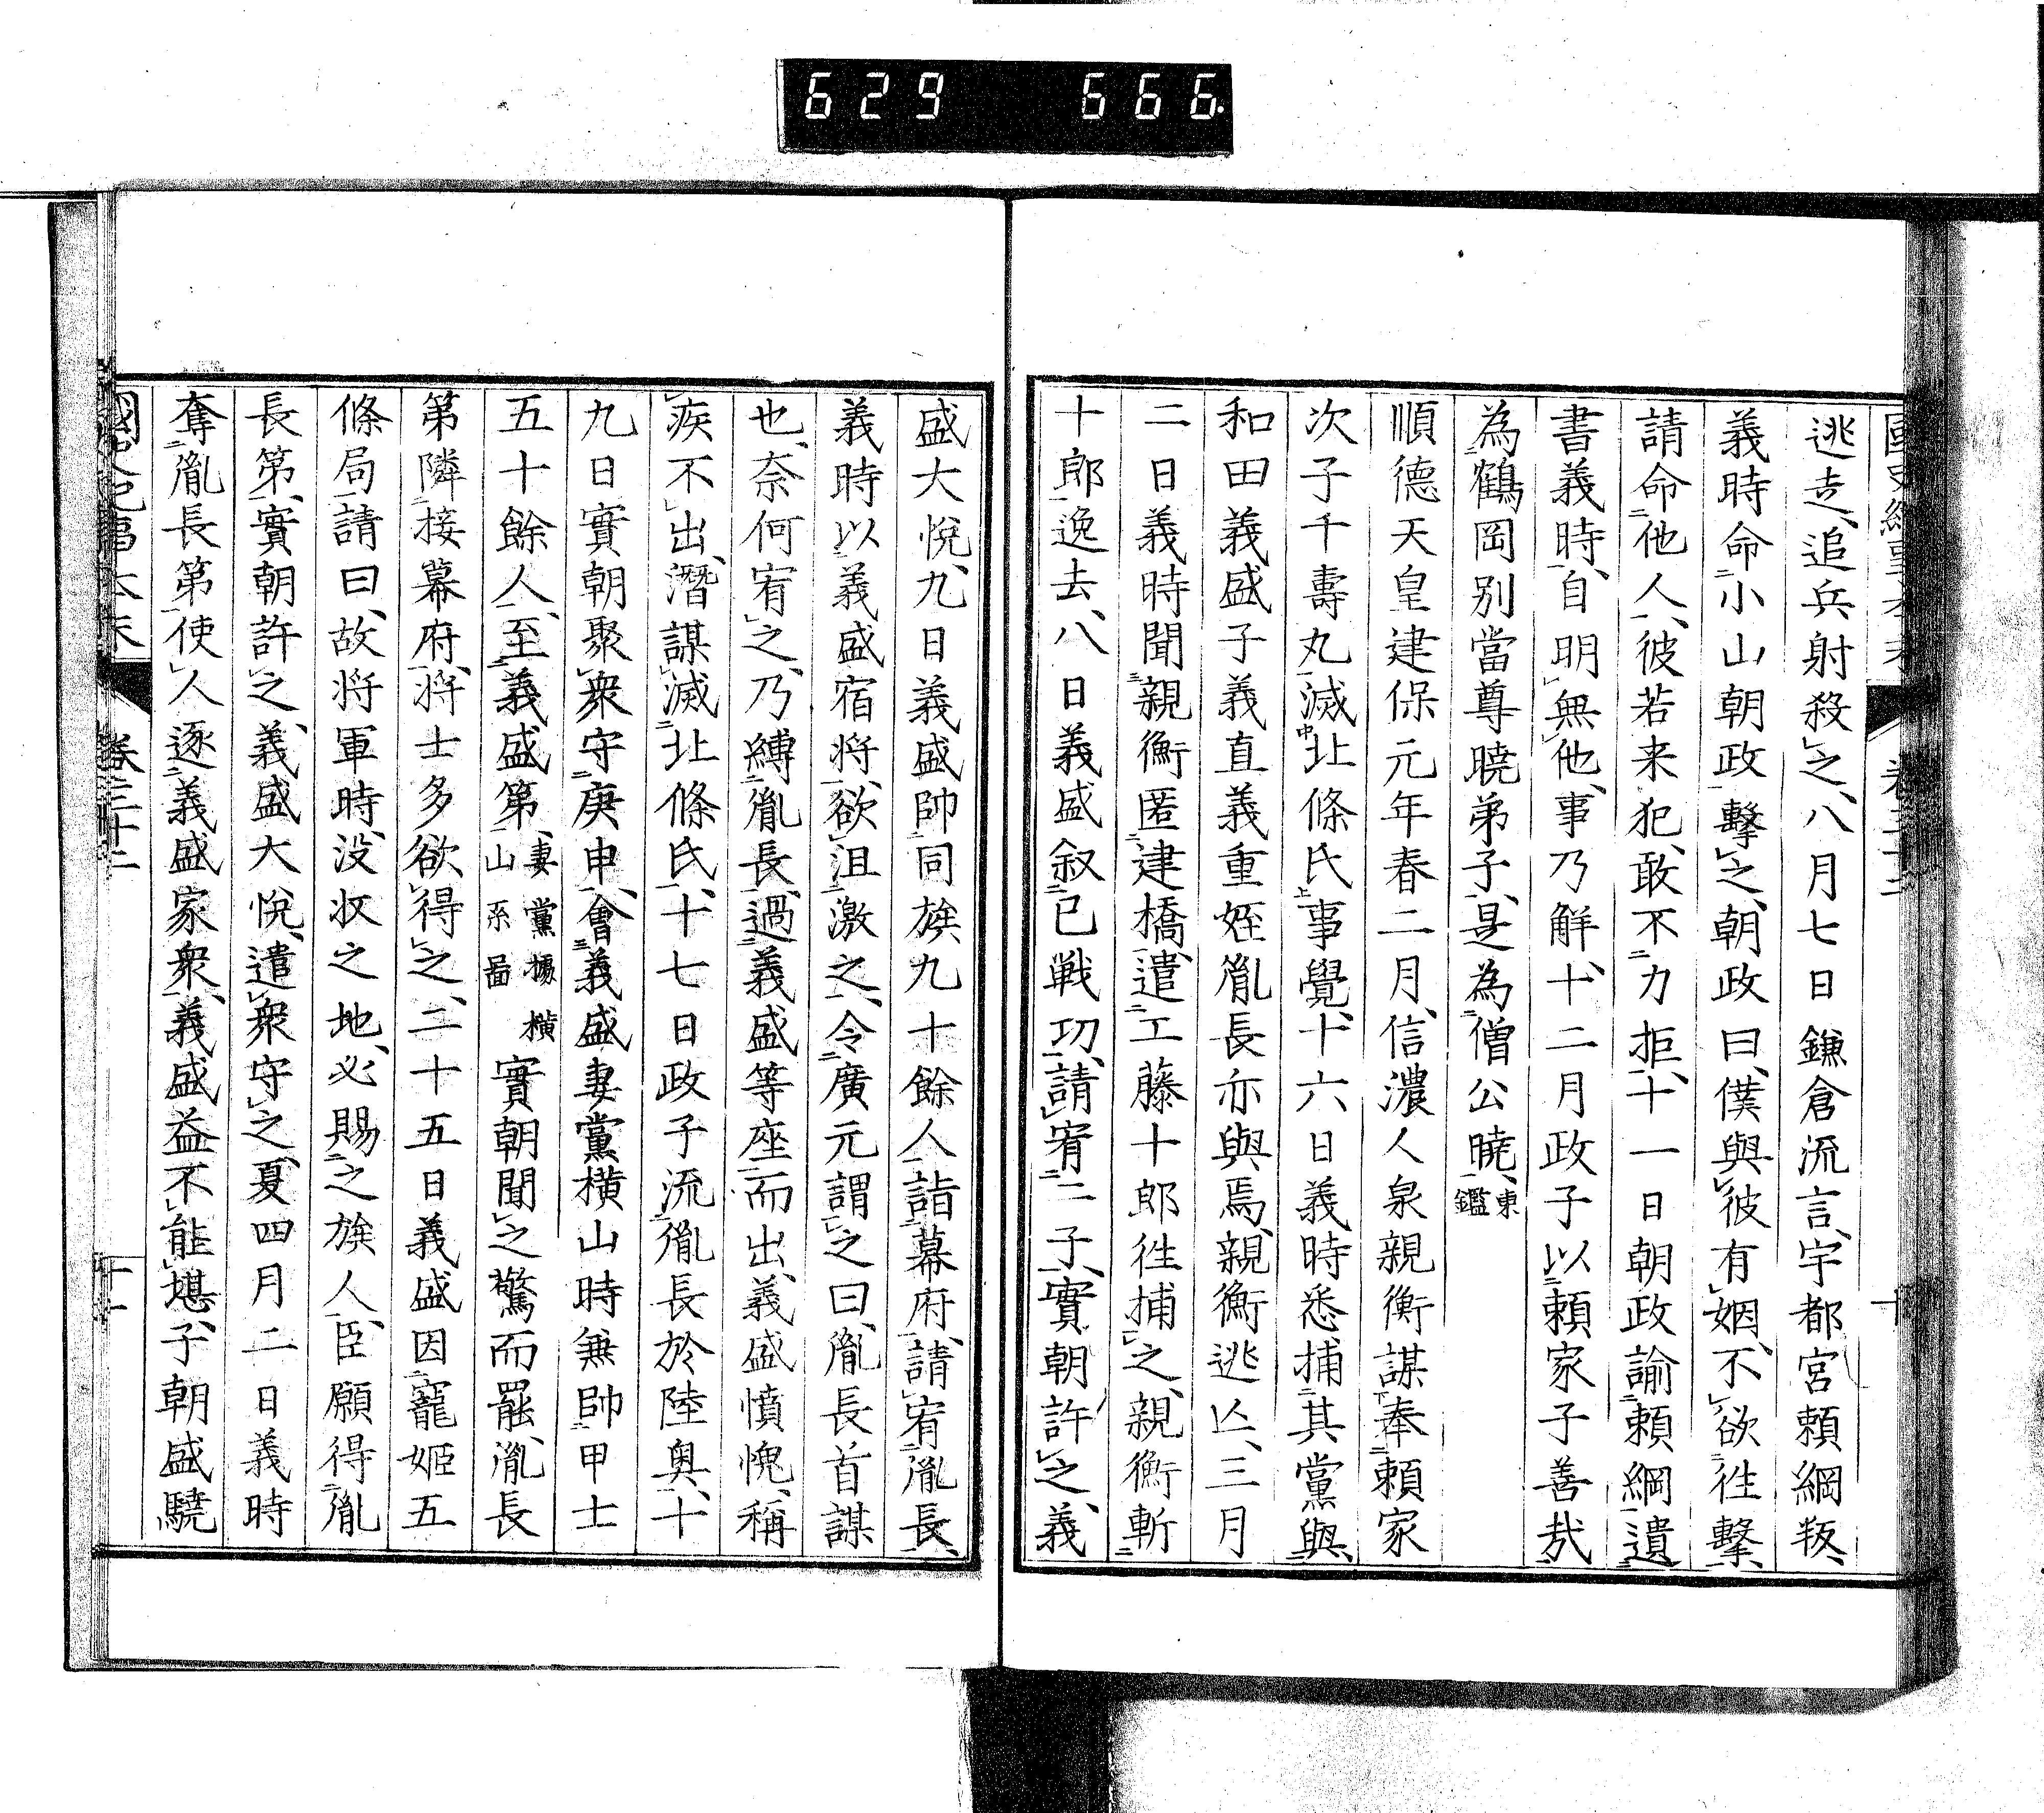 629 666
國史紀事本末 卷三十二 十
逃走、追兵射殺之、八月七日鎌倉流言、宇都宮頼綱叛、
義時命小山朝政擊之、朝政曰、僕與彼有姻、不欲往擊、
請命他人、彼若来犯、敢不力拒、十一日朝政諭頼綱遺
書義時、自明無他、事乃解、十二月政子以頼家子善哉
為鶴岡別當尊曉弟子、是為僧公曉、東鑑
順德天皇建保元年春二月、信濃人泉親衡謀奉頼家
次子千壽丸滅北條氏事覺、十六日義時悉捕其黨與、
和田義盛子義直義重姪胤長亦與焉、親衡逃亡、三月
二日義時聞親衡匿建橋、遣工藤十郎往捕之、親衡斬
十郎逸去、八日義盛叙已戦功、請宥二子、實朝許之、義
盛大悅、九日義盛帥同族九十餘人詣幕府、請宥胤長、
義時以義盛宿将、欲沮激之、令廣元謂之曰、胤長首謀
也、奈何宥之、乃縛胤長、過義盛等座而出、義盛憤愧、稱
疾不出、潛謀滅北條氏、十七日政子流胤長於陸奥、十
九日實朝聚衆守庚申、會義盛妻黨橫山時兼帥甲士
五十餘人、至義盛第、妻黨據橫山系圖實朝聞之驚而罷、胤長
第隣接幕府、将士多欲得之、二十五日義盛因寵姬五
條局請曰、故将軍時、没收之地、必賜之族人、臣願得胤
長第、實朝許之、義盛大悅、遣衆守之、夏四月二日義時
奪胤長第使人逐義盛家衆、義盛益不能堪、子朝盛驍
國史紀事本末 卷三十二 十一